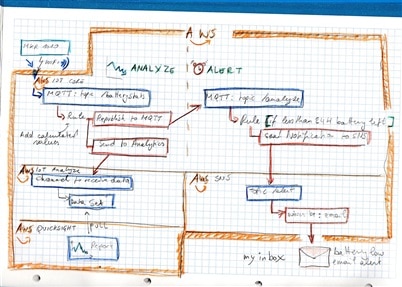 AWS
MKR
WiFi
AWS IOT CORE
ANALYZE
ALERT
MQTT: topic /batterystats
MQTT: topic /analyze
Rule
Republish to MQTT
Rule [if less than 84H battery left]
Add calculated
values
Send to Analytics
Send Notification to SNS
AWS IoT Analyze
Channel to receive data
AWS SNS
Data Set
Topic Alert
PULL
AWS QUICKSIGHT
Report
my inbox
battery low
email alert